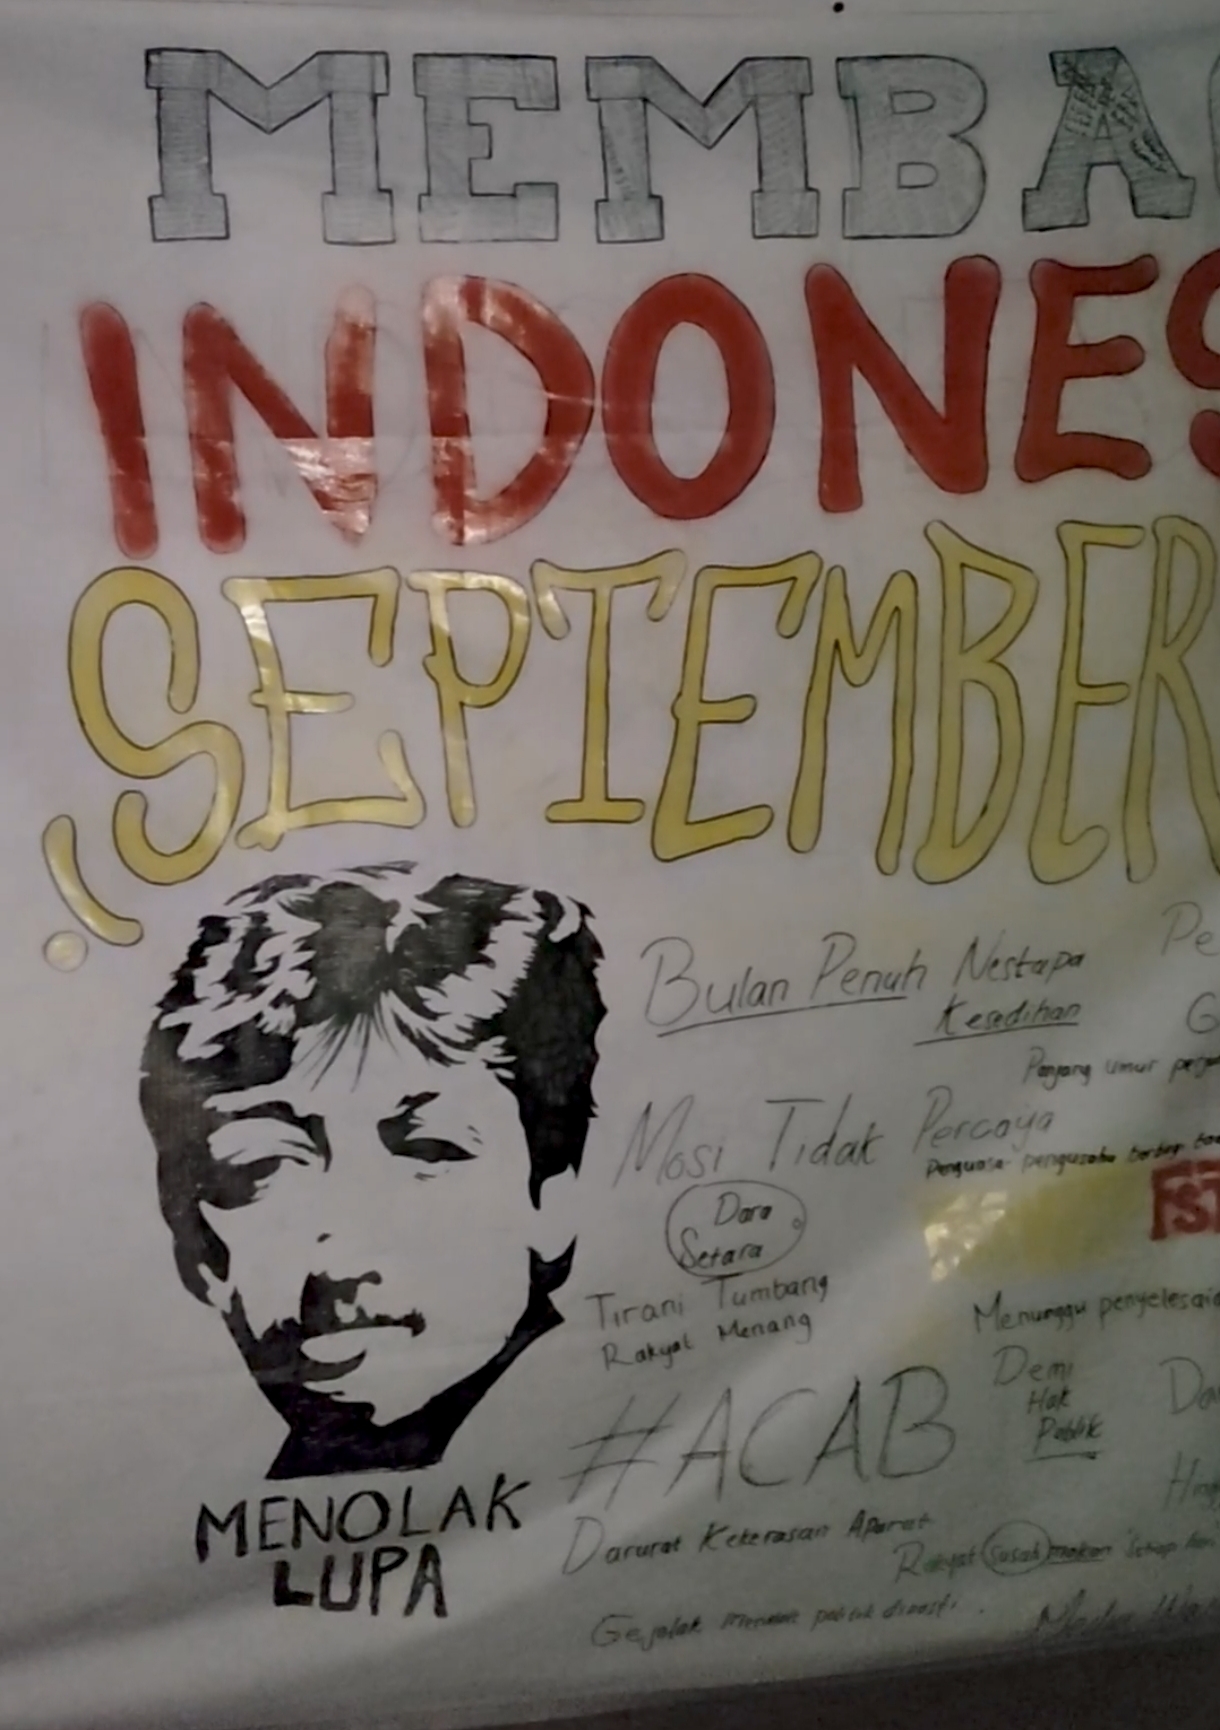 MEMBA
INDONES
SEPTEMBER
Bulan Penuh Nestapa
Kesedihan
Panjang umur
Mosi Tidak Percaya
Penguasa pengusaha
Dara
Setara
Tirani Tumbang
Rakyat Menang
Menunggu
#ACAB
Demi
Hak
Publik
MENOLAK
LUPA
Darurat Kekerasan Aparat
Rakyat susah makan setiap hari
Gejolak